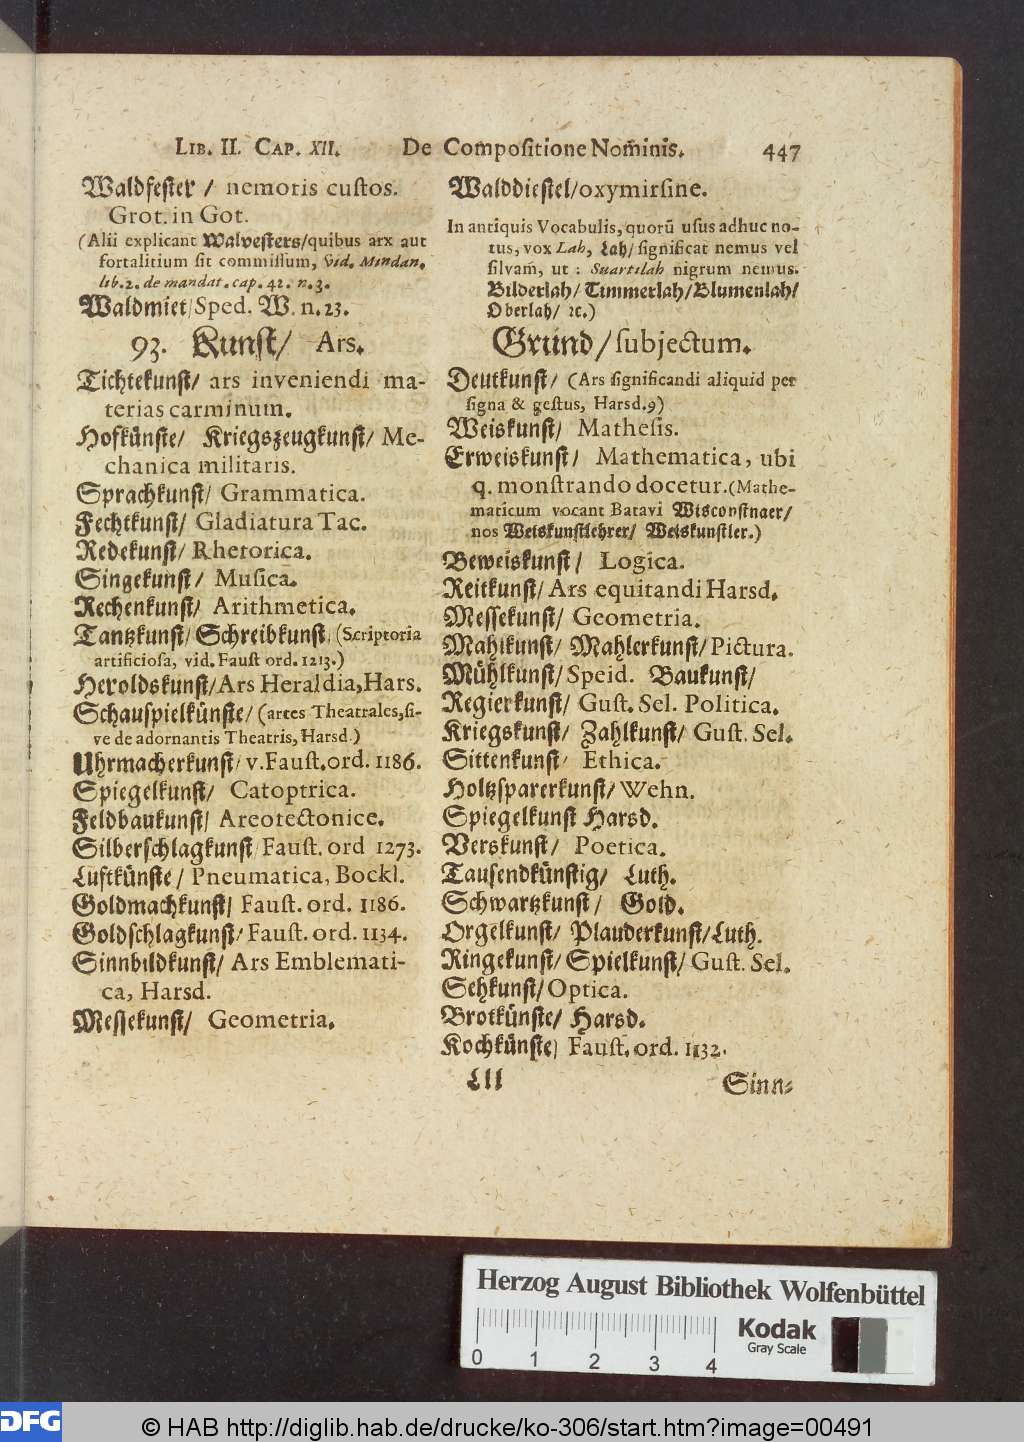 LIB. II. CAP. XII. De Compositione Nom̃inis. 447
Waldfester / nemoris custos.
Grot. in Got.
(Alii explicant Walvesters/quibus arx aut
fortalitium sit commissum, vid. Mindan.
lib. 2. de mandat. cap. 42. n. 3.
Waldmiet/Sped. W. n. 23.
93. Kunst/ Ars.
Tichtekunst/ ars inveniendi ma-
terias carminum.
Hofkünste/ Kriegszeugkunst/ Me-
chanica militaris.
Sprachkunst/ Grammatica.
Fechtkunst/ Gladiatura Tac.
Redekunst/ Rhetorica.
Singekunst/ Musica.
Rechenkunst/ Arithmetica.
Tantzkunst/ Schreibkunst, (Scriptoria
artificiosa, vid. Faust ord. 1213.)
Heroldskunst/Ars Heraldia, Hars.
Schauspielkünste/ (artes Theatrales, si-
ve de adornantis Theatris, Harsd.)
Uhrmacherkunst/ v. Faust. ord. 1186.
Spiegelkunst/ Catoptrica.
Feldbaukunst/ Areotectonice.
Silberschlagkunst/ Faust. ord 1273.
Luftkünste/ Pneumatica, Bockl.
Goldmachkunst/ Faust. ord. 1186.
Goldschlagkunst/ Faust. ord. 1134.
Sinnbildkunst/ Ars Emblemati-
ca, Harsd.
Messekunst/ Geometria.
Walddiestel/oxymirsine.
In antiquis Vocabulis, quorũ usus adhuc no-
tus, vox Lah, Lah/ significat nemus vel
silvam̃, ut : Suartilah nigrum nemus.
Bilderlah/ Timmerlah/Blumenlah/
Oberlah/ ꝛc.)
Grund/subjectum.
Deutkunst/ (Ars significandi aliquid per
signa & gestus, Harsd. 9)
Weiskunst/ Mathesis.
Erweiskunst/ Mathematica, ubi
q. monstrando docetur. (Mathe-
maticum vocant Batavi Wisconstnaer/
nos Weiskunstlehrer/ Weiskunstler.)
Beweiskunst/ Logica.
Reitkunst/ Ars equitandi Harsd.
Messekunst/ Geometria.
Mahlkunst/ Mahlerkunst/Pictura.
Mühlkunst/Speid. Baukunst/
Regierkunst/ Gust. Sel. Politica.
Kriegskunst/ Zahlkunst/ Gust. Sel.
Sittenkunst/ Ethica.
Holtzsparerkunst/ Wehn.
Spiegelkunst Harsd.
Verskunst/ Poetica.
Tausendkünstig/ Luth.
Schwartzkunst/ Gold.
Orgelkunst/ Plauderkunst/Luth.
Ringekunst/ Spielkunst/ Gust. Sel.
Sehkunst/Optica.
Brotkünste/ Harsd.
Kochkünste/ Faust. ord. 1132.
Lll Sinn-
Herzog August Bibliothek Wolfenbüttel
Kodak
Gray Scale
0 1 2 3 4
DFG
© HAB http://diglib.hab.de/drucke/ko-306/start.htm?image=00491